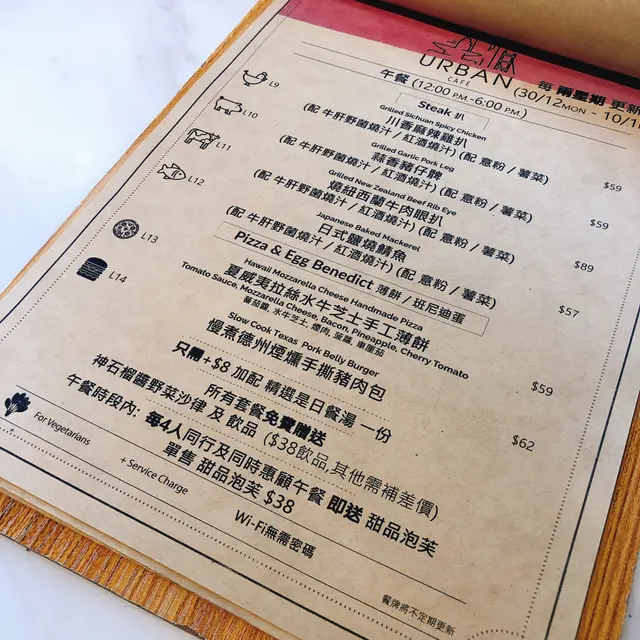 URBAN
CAFE
午餐 (12:00 P.M.-6:00 P.M.)
每 兩星期 更新
(30/12MON - 10/1
Steak 扒
L9
Grilled Sichuan Spicy Chicken
川香麻辣雞扒
(配 牛肝野菌燒汁 / 紅酒燒汁) (配 意粉 / 薯菜)
$59
L10
Grilled Garlic Pork Leg
蒜香豬仔髀
(配 牛肝野菌燒汁 / 紅酒燒汁) (配 意粉 / 薯菜)
$59
L11
Grilled New Zealand Beef Rib Eye
燒紐西蘭牛肉眼扒
(配 牛肝野菌燒汁 / 紅酒燒汁) (配 意粉 / 薯菜)
$89
L12
Japanese Baked Mackerel
日式鹽燒鯖魚
(配 牛肝野菌燒汁 / 紅酒燒汁) (配 意粉 / 薯菜)
$57
Pizza & Egg Benedict 薄餅 / 班尼迪蛋
L13
Hawaii Mozzarella Cheese Handmade Pizza
夏威夷拉絲水牛芝士手工薄餅
Tomato Sauce, Mozzarella Cheese, Bacon, Pineapple, Cherry Tomato
蕃茄醬, 水牛芝士, 煙肉, 菠蘿, 車厘茄
$59
L14
Slow Cook Texas Pork Belly Burger
慢煮德州煙燻手撕豬肉包
$62
只需 +$8 加配 精選是日餐湯 一份
所有套餐免費贈送
神石榴醬野菜沙律 及 飲品 ($38飲品,其他需補差價)
午餐時段內: 每4人同行及同時惠顧午餐 即送 甜品泡芙
單售 甜品泡芙 $38
For Vegetarians
+ Service Charge
Wi-Fi無需密碼
餐牌將不定期更新